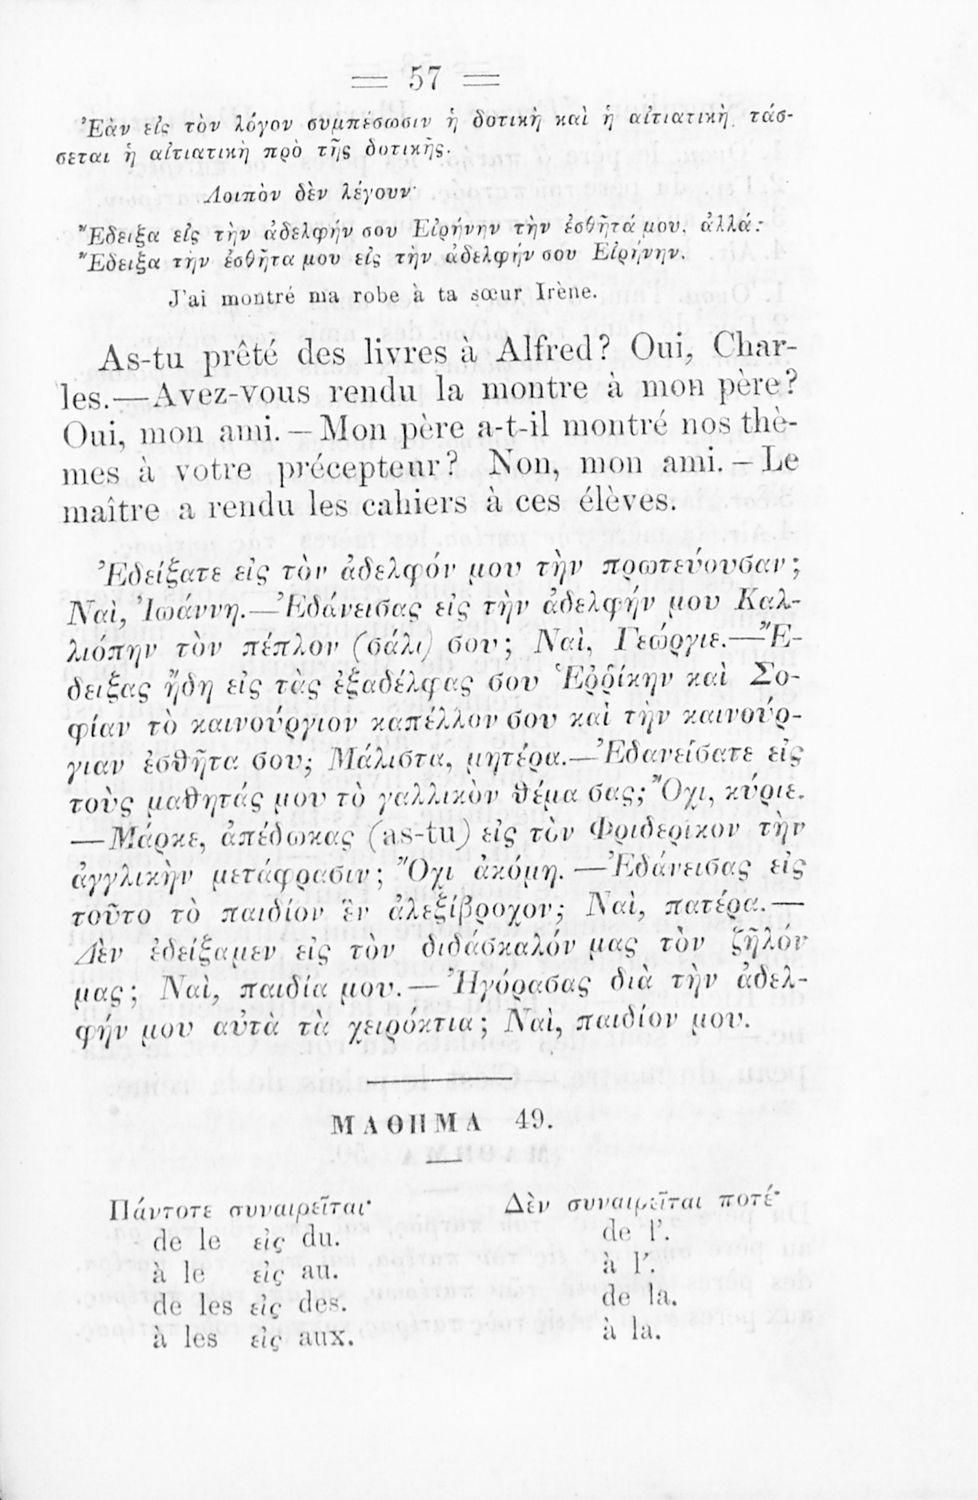 57
Ἐὰν εἰς τὸν λόγον συμπέσωσιν ἡ δοτικὴ καὶ ἡ αἰτιατικὴ, τάσ-
σεται ἡ αἰτιατικὴ πρὸ τῆς δοτικῆς.
Λοιπὸν δὲν λέγουν·
Ἔδειξα εἰς τὴν ἀδελφήν σου Εἰρήνην τὴν ἐσθῆτά μου, ἀλλά:
Ἔδειξα τὴν ἐσθῆτα μου εἰς τὴν ἀδελφήν σου Εἰρήνην.
J'ai montré ma robe à ta sœur Irène.
As-tu prêté des livres à Alfred? Oui, Char-
les.—Avez-vous rendu la montre à mon père?
Oui, mon ami.—Mon père a-t-il montré nos thè-
mes à votre précepteur? Non, mon ami.—Le
maître a rendu les cahiers à ces élèves.
Ἐδείξατε εἰς τὸν ἀδελφόν μου τὴν πρωτεύουσαν;
Ναὶ, Ἰωάννη.—Ἐδάνεισας εἰς τὴν ἀδελφήν μου Καλ-
λιόπην τὸν πέπλον (σάλι) σου; Ναὶ, Γεώργιε.—Ἔ-
δειξας ἤδη εἰς τὰς ἐξαδέλφας σου Ἑῤῥίκην καὶ Σο-
φίαν τὸ καινούργιον καπέλλον σου καὶ τὴν καινούρ-
γιαν ἐσθῆτα σου; Μάλιστα, μητέρα.—Ἐδανείσατε εἰς
τοὺς μαθητάς μου τὸ γαλλικὸν θέμα σας; Ὄχι, κύριε.
—Μάρκε, ἀπέδωκας (as-tu) εἰς τὸν Φριδερῖκον τὴν
ἀγγλικὴν μετάφρασιν; Ὄχι ἀκόμη.—Ἐδάνεισας εἰς
τοῦτο τὸ παιδίον ἓν ἀλεξίβροχον; Ναὶ, πατέρα.—
Δὲν ἐδείξαμεν εἰς τὸν διδάσκαλόν μας τὸν ζῆλόν
μας; Ναὶ, παιδία μου.—Ἠγόρασας διὰ τὴν ἀδελ-
φήν μου αὐτὰ τὰ χειρόκτια; Ναὶ, παιδίον μου.
ΜΑΘΗΜΑ 49.
Πάντοτε συναιρεῖται· Δὲν συναιρεῖται ποτέ·
de le εἰς du. de l'.
à le εἰς au. à l'.
de les εἰς des. de la.
à les εἰς aux. à la.